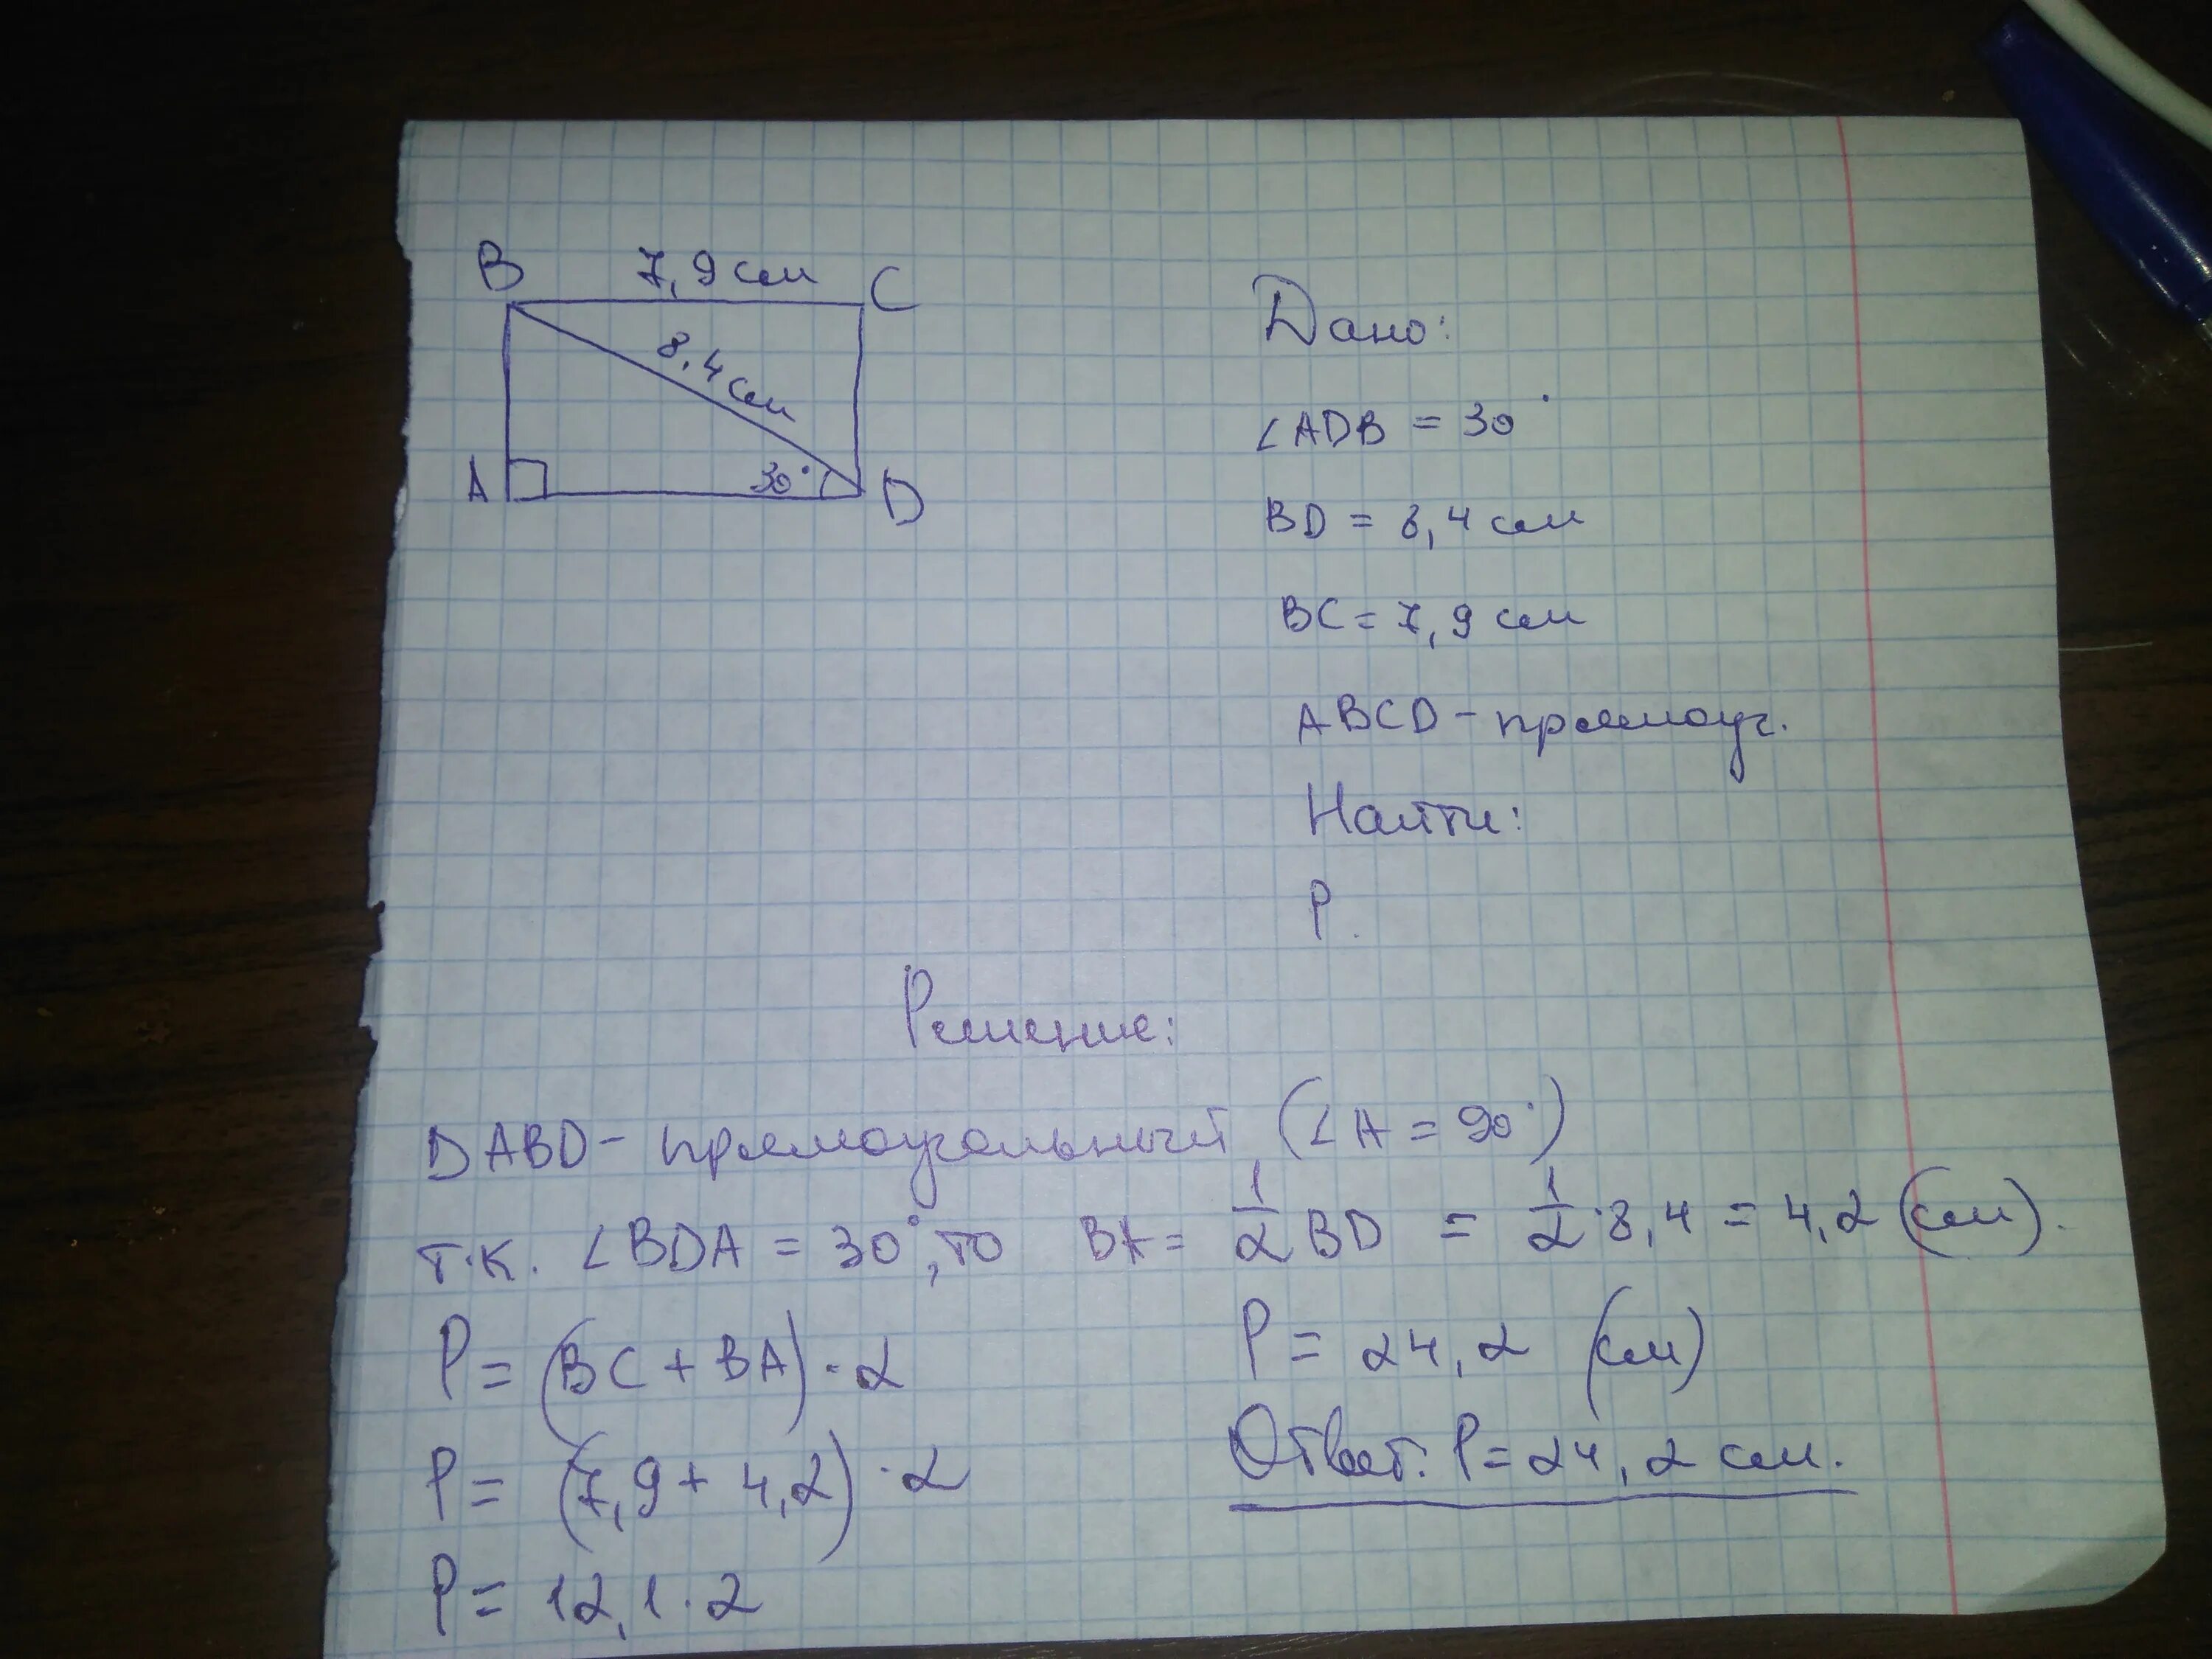 B 7,9 см C
8,4 см
A 30° D
Дано:
∠ADB = 30°
BD = 8,4 см
BC = 7,9 см
ABCD – прямоуг.
Найти:
P.
Решение:
DABD – прямоугольный (∠A = 90°)
т.к. ∠BDA = 30°, то BA = 1/2 BD = 1/2 · 8,4 = 4,2 (см).
P = (BC + BA) · 2
P = (7,9 + 4,2) · 2
P = 12,1 · 2
P = 24,2 (см)
Ответ: P = 24,2 см.